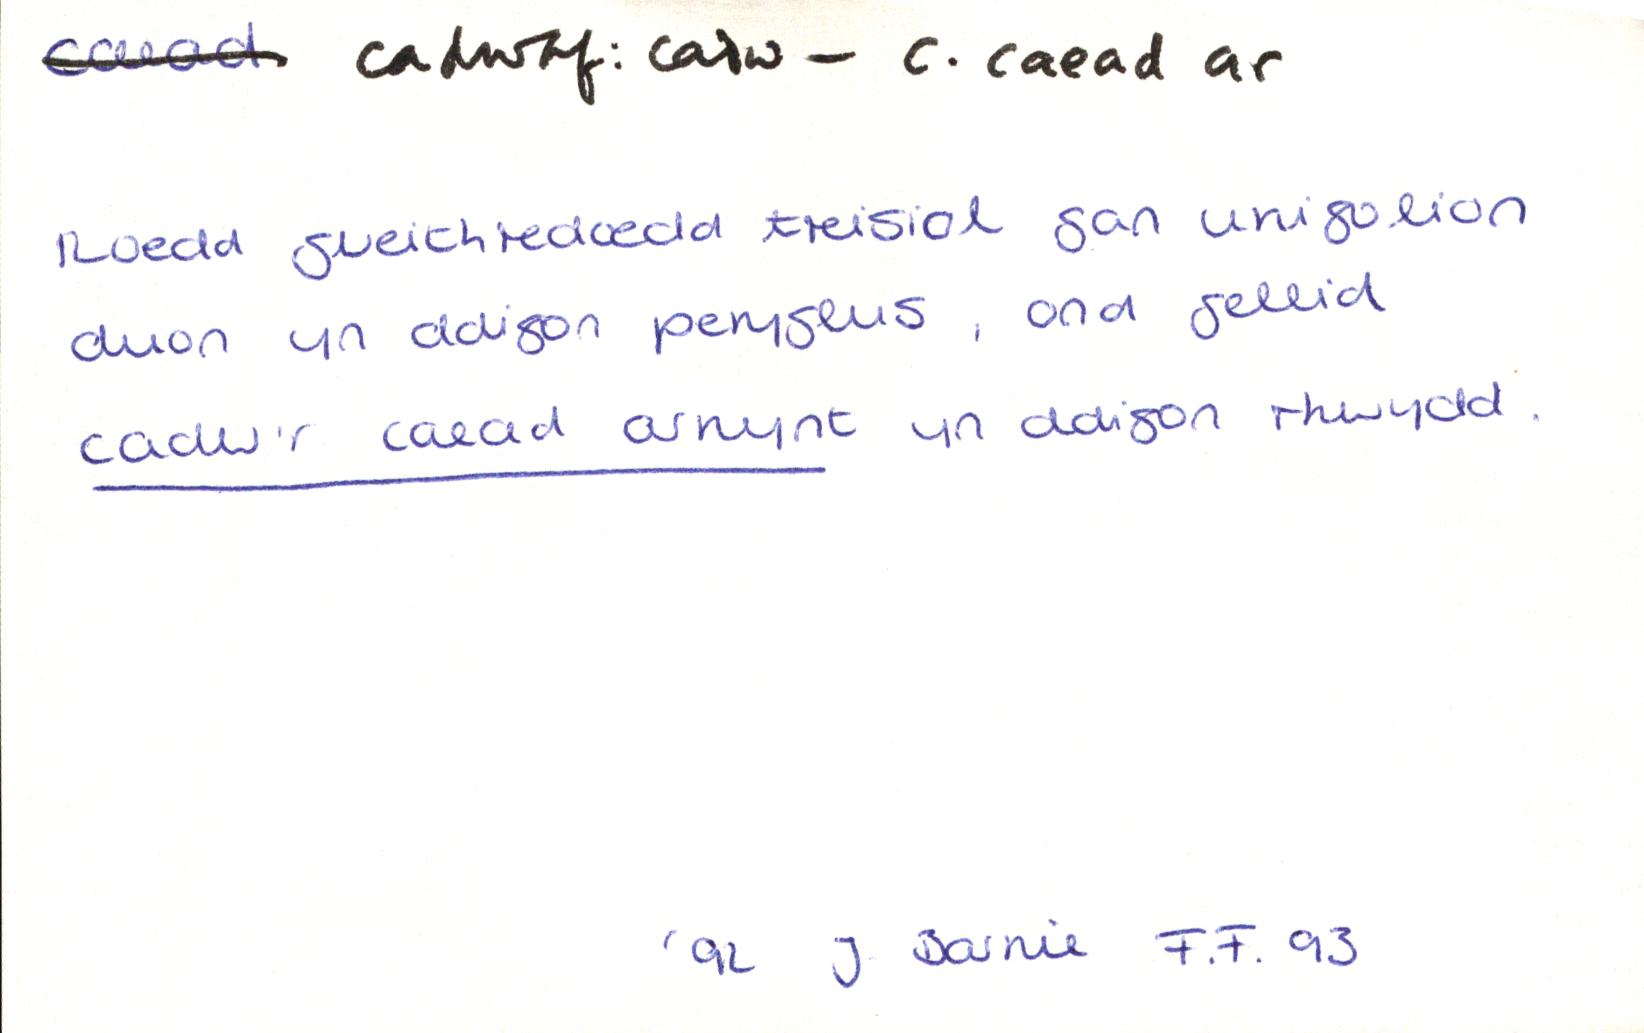 caead cadwaf: cadw – c. caead ar
Roedd gweithredoedd treisiol gan unigolion
duon yn ddigon peryglus, ond gellid
cadw'r caead arnynt yn ddigon rhwydd.
'92 J. Barnie F.F. 93